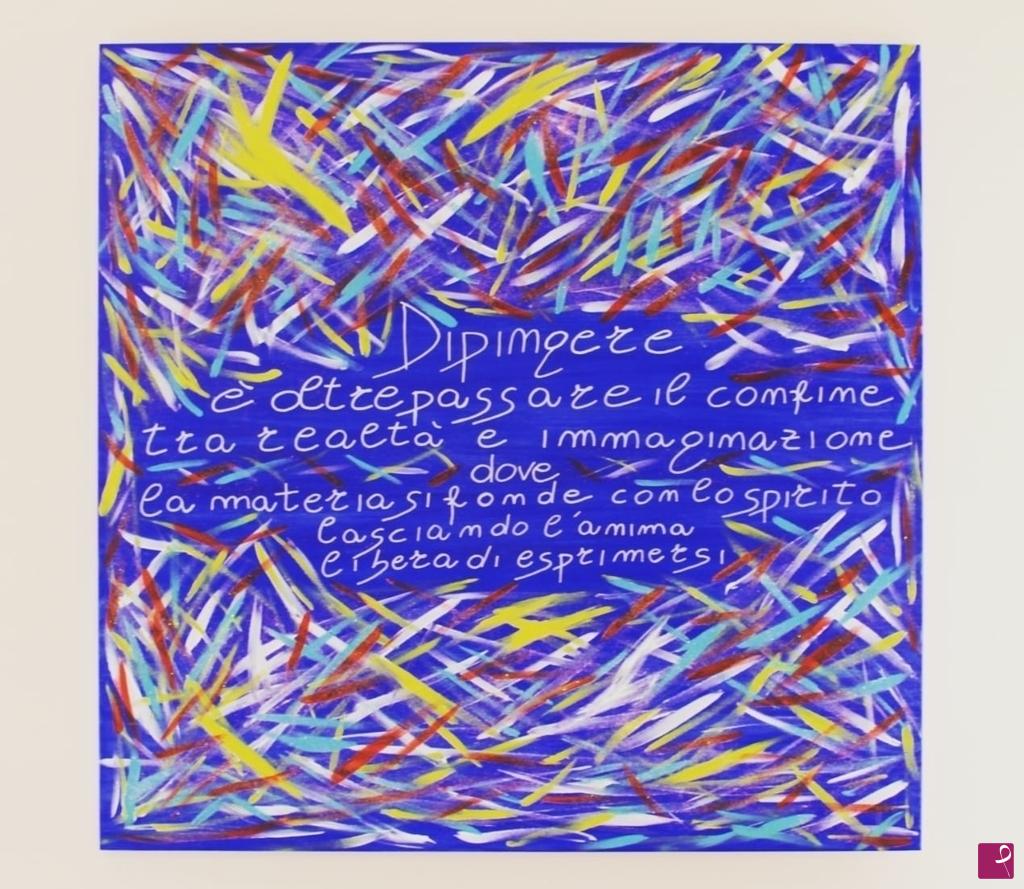 Dipingere
è oltrepassare il confine
tra realtà e immaginazione
dove
la materia si fonde con lo spirito
lasciando l'anima
libera di esprimersi